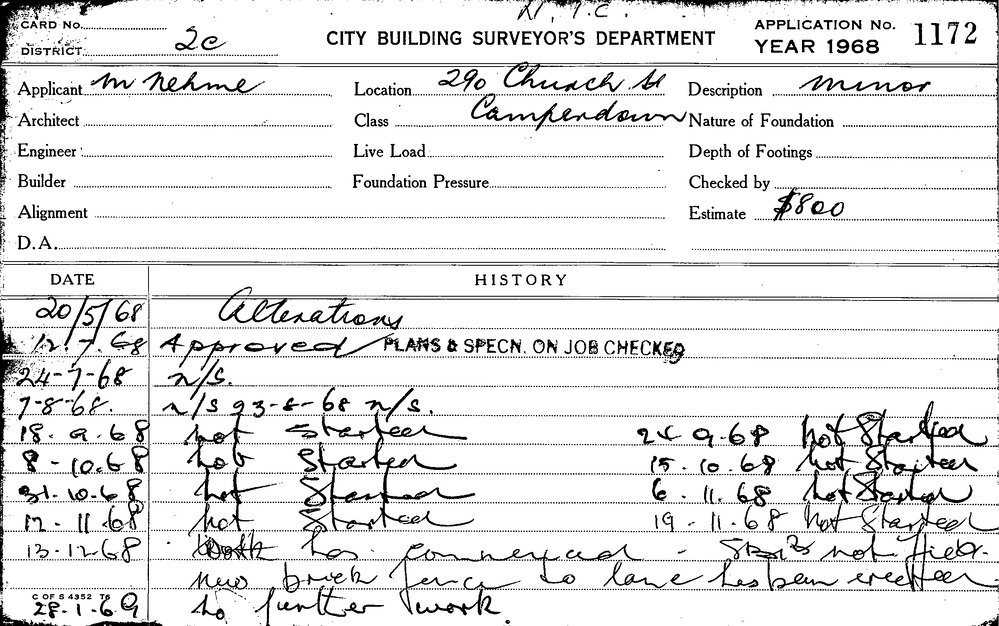 N.T.C.
CARD No.
DISTRICT 2c
CITY BUILDING SURVEYOR'S DEPARTMENT
APPLICATION No. 1172
YEAR 1968
Applicant M Nehme
Location 290 Church St
Description Minor
Architect
Class Camperdown
Nature of Foundation
Engineer
Live Load
Depth of Footings
Builder
Foundation Pressure
Checked by
Alignment
Estimate $800
D.A.
DATE HISTORY
20/5/68 Alterations
12.7.68 Approved PLANS & SPECN. ON JOB CHECKED
24-7-68 n/s.
7-8-68. n/s 23-8-68 n/s.
18.9.68 not Started 25 9.68 not Started
8-10.68 not Started 15.10.68 not Started
31.10.68 not Started 6.11.68 not Started
12-11.68 not Started 19-11-68 not Started
13-12-68 Work has commenced - not
New brick fence to lane has been erected
C OF S 4352 76
28.1.69 no further work